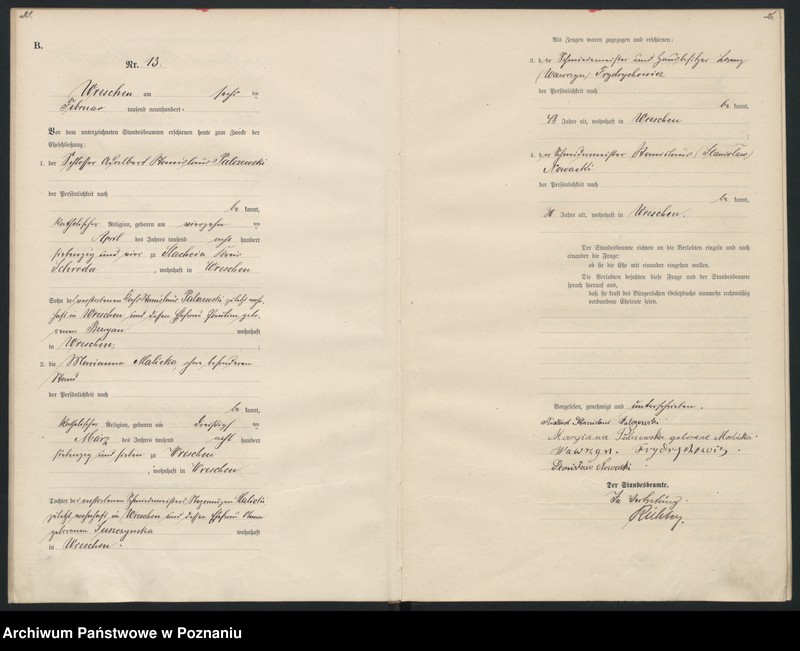 B.
Nr. 13.
Wreschen am sechs ten
Februar tausend neunhundert.
Vor dem unterzeichneten Standesbeamten erschienen heute zum Zwecke der
Eheschließung:
1. der Schlosser Adalbert Stanislaus
der Persönlichkeit nach
be kannt,
katholischer Religion, geboren am vierzehn ten
April des Jahres tausend acht hundert
siebenzig und vier zu Kreis
Schroda, wohnhaft in Wreschen
Sohn des verstorbenen Stanislaus zuletzt wohn-
haft in Wreschen und dessen Ehefrau gebo-
renen wohnhaft
in Wreschen;
2. die Marianna Malicka, ohne besonderen
Stand
der Persönlichkeit nach
be kannt,
katholischer Religion, geboren am dreißig ten
März des Jahres tausend acht hundert
siebenzig und sieben zu Wreschen
, wohnhaft in Wreschen
Tochter des verstorbenen Schmiedemeisters Malicki
zuletzt wohnhaft in Wreschen und dessen Ehefrau
geborenen wohnhaft
in Wreschen.
Als Zeugen waren zugezogen und erschienen:
3. der Schmiedemeister und Hausbesitzer Lorenz
(Wawrzyn) Frydrychowicz
der Persönlichkeit nach
be kannt,
48 Jahre alt, wohnhaft in Wreschen
;
4. der Schneidermeister Stanislaus (Stanisław)
Nowacki
der Persönlichkeit nach
be kannt,
Jahre alt, wohnhaft in Wreschen.
Der Standesbeamte richtete an die Verlobten einzeln und nach
einander die Frage:
ob sie die Ehe mit einander eingehen wollen.
Die Verlobten bejahten diese Frage und der Standesbeamte
sprach hierauf aus,
daß sie kraft des Bürgerlichen Gesetzbuchs nunmehr rechtmäßig
verbundene Eheleute seien.
Vorgelesen, genehmigt und unterschrieben.
Maryianna geborene Malicka.
Wawrzyn. Frydrychowicz
Stanisław Nowacki
Der Standesbeamte.
In Vertretung.
Archiwum Państwowe w Poznaniu